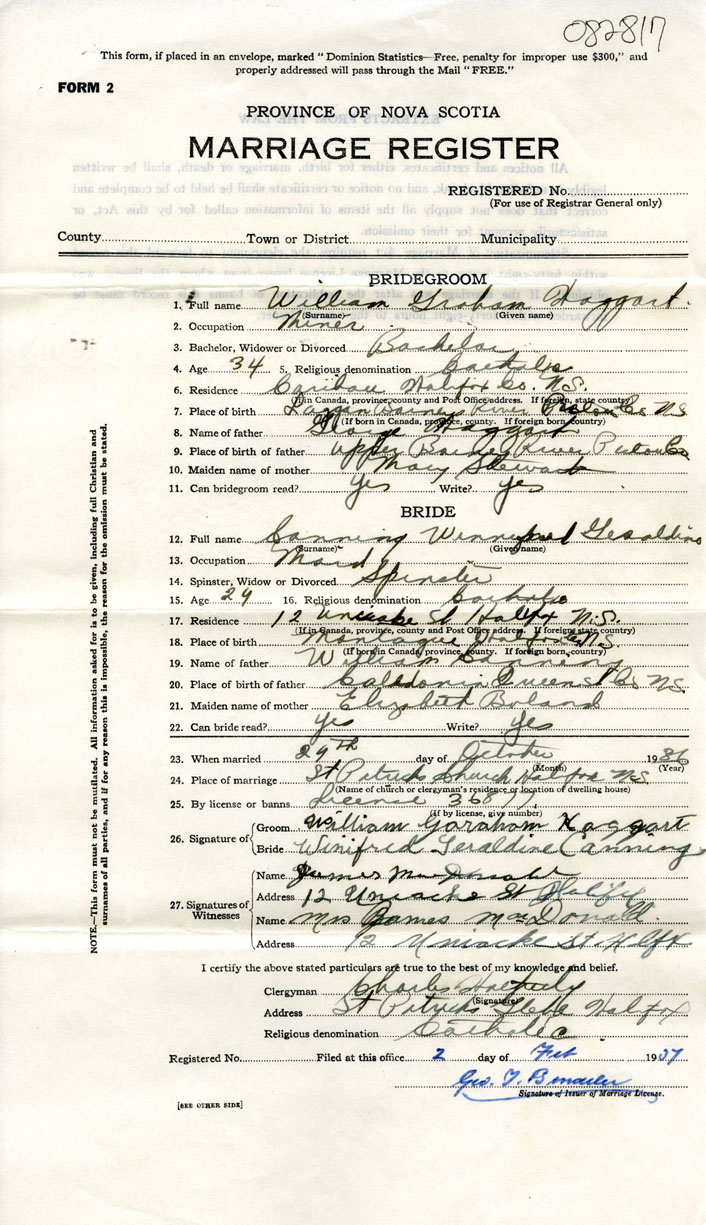 082817
This form, if placed in an envelope, marked "Dominion Statistics—Free, penalty for improper use $300," and
properly addressed will pass through the Mail "FREE."
FORM 2
PROVINCE OF NOVA SCOTIA
MARRIAGE REGISTER
REGISTERED No.
(For use of Registrar General only)
County Town or District Municipality
BRIDEGROOM
1. Full name William Graham Haggart
(Surname) (Given name)
2. Occupation Miner
3. Bachelor, Widower or Divorced Bachelor
4. Age 34 5. Religious denomination Catholic
6. Residence Caribou Halifax Co. N.S.
(If in Canada, province, county and Post Office address. If foreign, state country)
7. Place of birth Barneys River Pictou Co N S
(If born in Canada, province, county. If foreign born, country)
8. Name of father George Haggart
9. Place of birth of father Upper Barneys River Pictou Co
10. Maiden name of mother Mary Stewart
11. Can bridegroom read? Yes Write? yes
BRIDE
12. Full name Canning Winnifred Geraldine
(Surname) (Given name)
13. Occupation Maid
14. Spinster, Widow or Divorced Spinster
15. Age 29 16. Religious denomination Catholic
17. Residence 12 Uniacke St Halfx N.S.
(If in Canada, province, county and Post Office address. If foreign state country)
18. Place of birth Montague
(If born in Canada, province, county. If foreign born, country)
19. Name of father William Canning
20. Place of birth of father Caledonia Queens Co NS
21. Maiden name of mother Elizabeth Boland
22. Can bride read? yes Write? yes
23. When married 29th day of October 1936
(Month) (Year)
24. Place of marriage St Patricks Church Halfax N.S.
(Name of church or clergyman's residence or location of dwelling house)
25. By license or banns License
(If by license, give number)
26. Signature of Groom William Goraham Haggart
Bride Winifred Geraldine Canning
27. Signatures of Witnesses
Name James
Address 12 Uniacke St
Name Mrs James MacDonald
Address 12 Uniacke St Hlfx
I certify the above stated particulars are true to the best of my knowledge and belief.
Clergyman Charles
(Signature)
Address St Patricks Glebe Halifax
Religious denomination Catholic
Registered No. Filed at this office 2 day of Feb 1937
Geo. T.
Signature of Issuer of Marriage License.
[SEE OTHER SIDE]
NOTE.—This form must not be mutilated. All information asked for is to be given, including full Christian and
surnames of all parties, and if for any reason this is impossible, the reason for the omission must be stated.